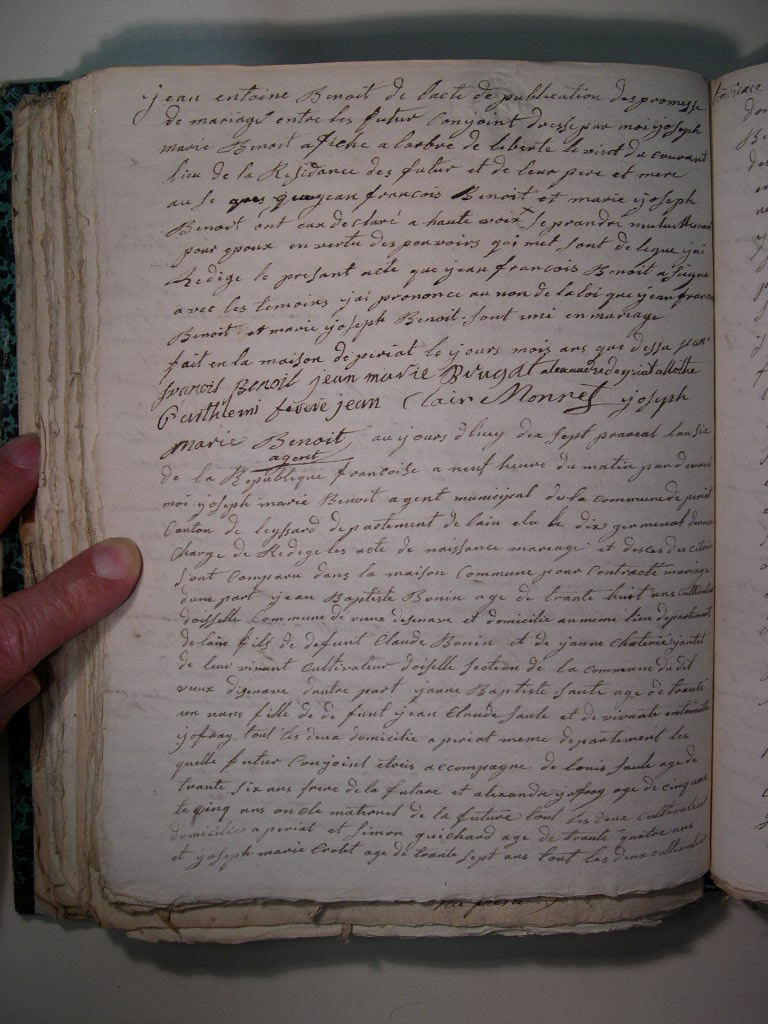 jean entoine Benoit de lacte de publication des promesse
de mariage entre les futur Conjoint dresse par moi joseph
marie Benoit afiche a larbre de leberte le vint du courant
lieu de la Residance des futur et de leur pere et mere
au se jean françois Benoit et marie joseph
Benoit ont eux declaré a haute voix se prandre mutuellement
pour epoux en vertu des pouvoirs qui met sont delegue jai
Redige le presant acte que jean françois Benoit a signe
avec les temoins jai prononce au non de la loi que jean françois
Benoit et marie joseph Benoit sont uni en mariage
fait en la maison de periat le jours mois ans que dessu jean
francois Benoit jean marie Brugal
Barthlemi fevre jean Clair Monnet joseph
marie Benoit au jours dhuy dix sept prareal lan six
agent
de la Republique francoise a neuf heure du matin par devant
moi joseph marie Benoit agent municipal de la commune de periat
Canton de leyssard departement de lain elu le dix germinal dernie
Charge de Redege les acte de naissance mareage et desces des citoien
Sont Comparu dans la maison Commune pour Contracté mariage
dune part jean Baptiste Bonin age de trante huit ans cultivateur
doisselle Commune de vieux disenave et domicilie au meme lieu departement
de lain fils de defunt Claude Bonin et de janne
de leur vivant Cultivateur doiselle section de la Commune du dit
vieux disenave dautre part janne Baptiste saule age de trante
un nares fille de de funt jean Claude saule et de vivante entoinette
jofray tout les deux domicilie a periat meme departement les
quelle futur Conjoint etois accompagne de louis saule age de
trante six ans frere de la future et alexandre jofray age de cinquan
te cinq ans oncle maternel de la future tout les deux cultivateur
domicilie a periat et simon guichard age de trante quatre ans
et joseph marie Crolet age de trante sept ans tout les deux cultivateur